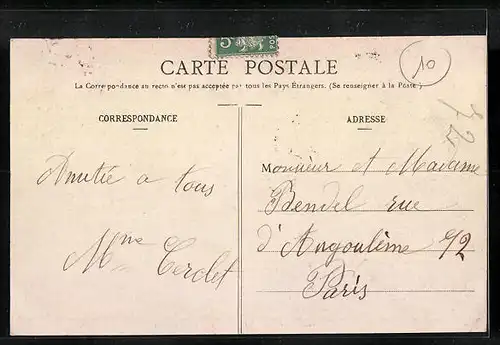 5
10
CARTE POSTALE
La Correspondance au recto n'est pas acceptée par tous les Pays Étrangers. (Se renseigner à la Poste.)
72
CORRESPONDANCE
Amitié a tous
Mme Cerclet
ADRESSE
Monsieur et Madame
Bendel rue
d'Angoulème 72
Paris